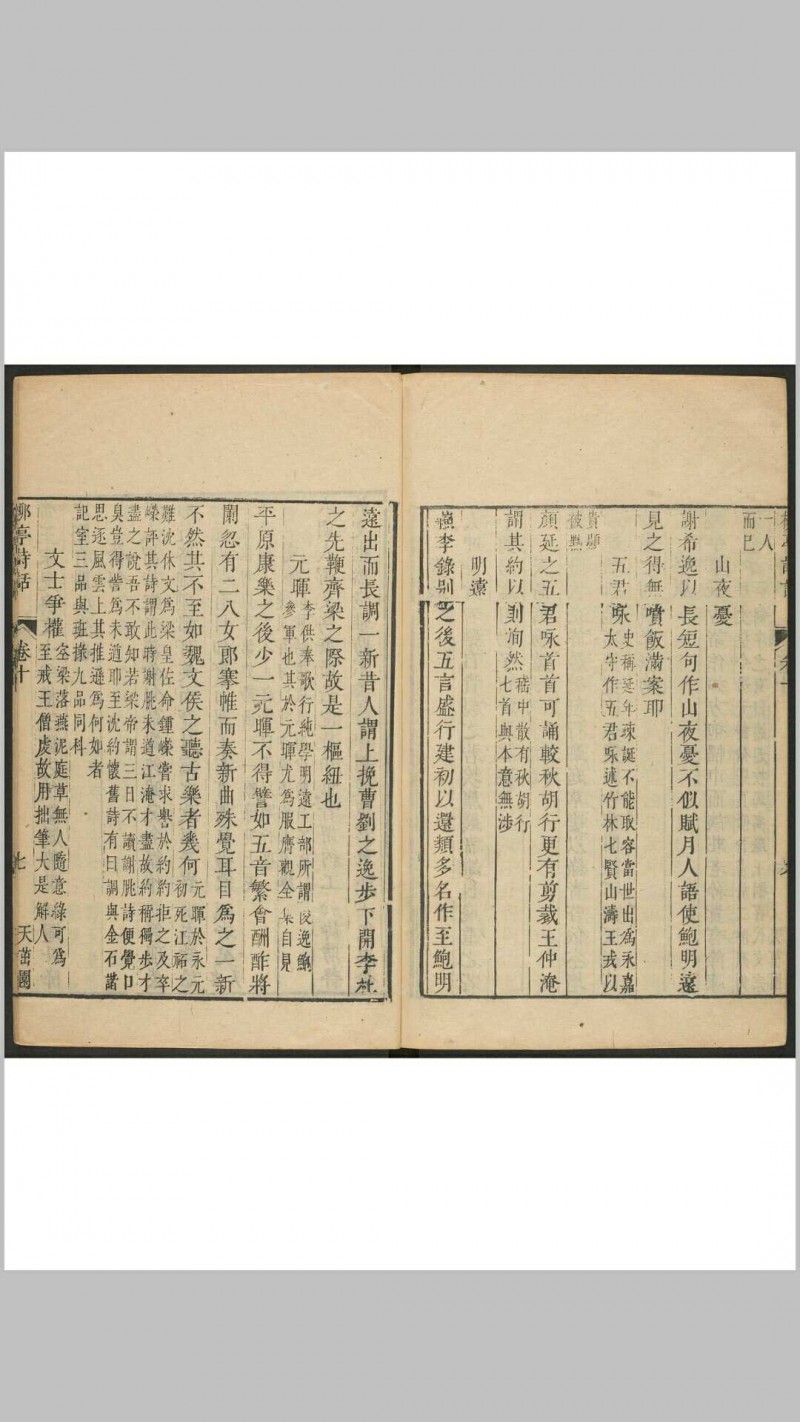 一人
而已
山夜憂
謝希逸以長短句作山夜憂不似賦月人語使鮑明遠
見之得無噴飯滿案耶
五君咏
史稱延年疎誕不能取容當世出為永嘉
太守作五君咏述竹林七賢山濤王戎以
貴顯
被黜
顏延之五君咏首首可誦較秋胡行更有剪裁王仲淹
謂其約以則洵然
嵇中散有秋胡行
七首與本意無涉
明遠
蘇李錄別之後五言盛行建初以還類多名作至鮑明
遠出而長調一新昔人謂上挽曹劉之逸步下開李杜
之先鞭齊梁之際故是一樞紐也
元暉
李供奉歌行純學明遠工部所謂俊逸鮑
參軍也其於元暉尤為服膺觀全集自見
平原康樂之後少一元暉不得譬如五音繁會酬酢將
闌忽有二八女郎搴帷而奏新曲殊覺耳目為之一新
不然其不至如魏文侯之聽古樂者幾何
元暉於永元
初死江祏之
難沈休文為梁皇佐命鍾嶸嘗求譽於約約拒之及卒
嶸評其詩謂此時謝朓未遒江淹才盡故約稱獨步才
盡之說吾不敢知若梁帝謂三日不讀謝朓詩便覺口
臭豈得訾為未遒耶至沈約懷舊詩有曰調與金石諧
思逐風雲上其推遜為何如者
記室三品與班掾九品同科
文士爭權
空梁落燕泥庭草無人隨意綠可為
至戒王僧虔故用拙筆大是解人
柳亭詩話
卷十
七
天茁園